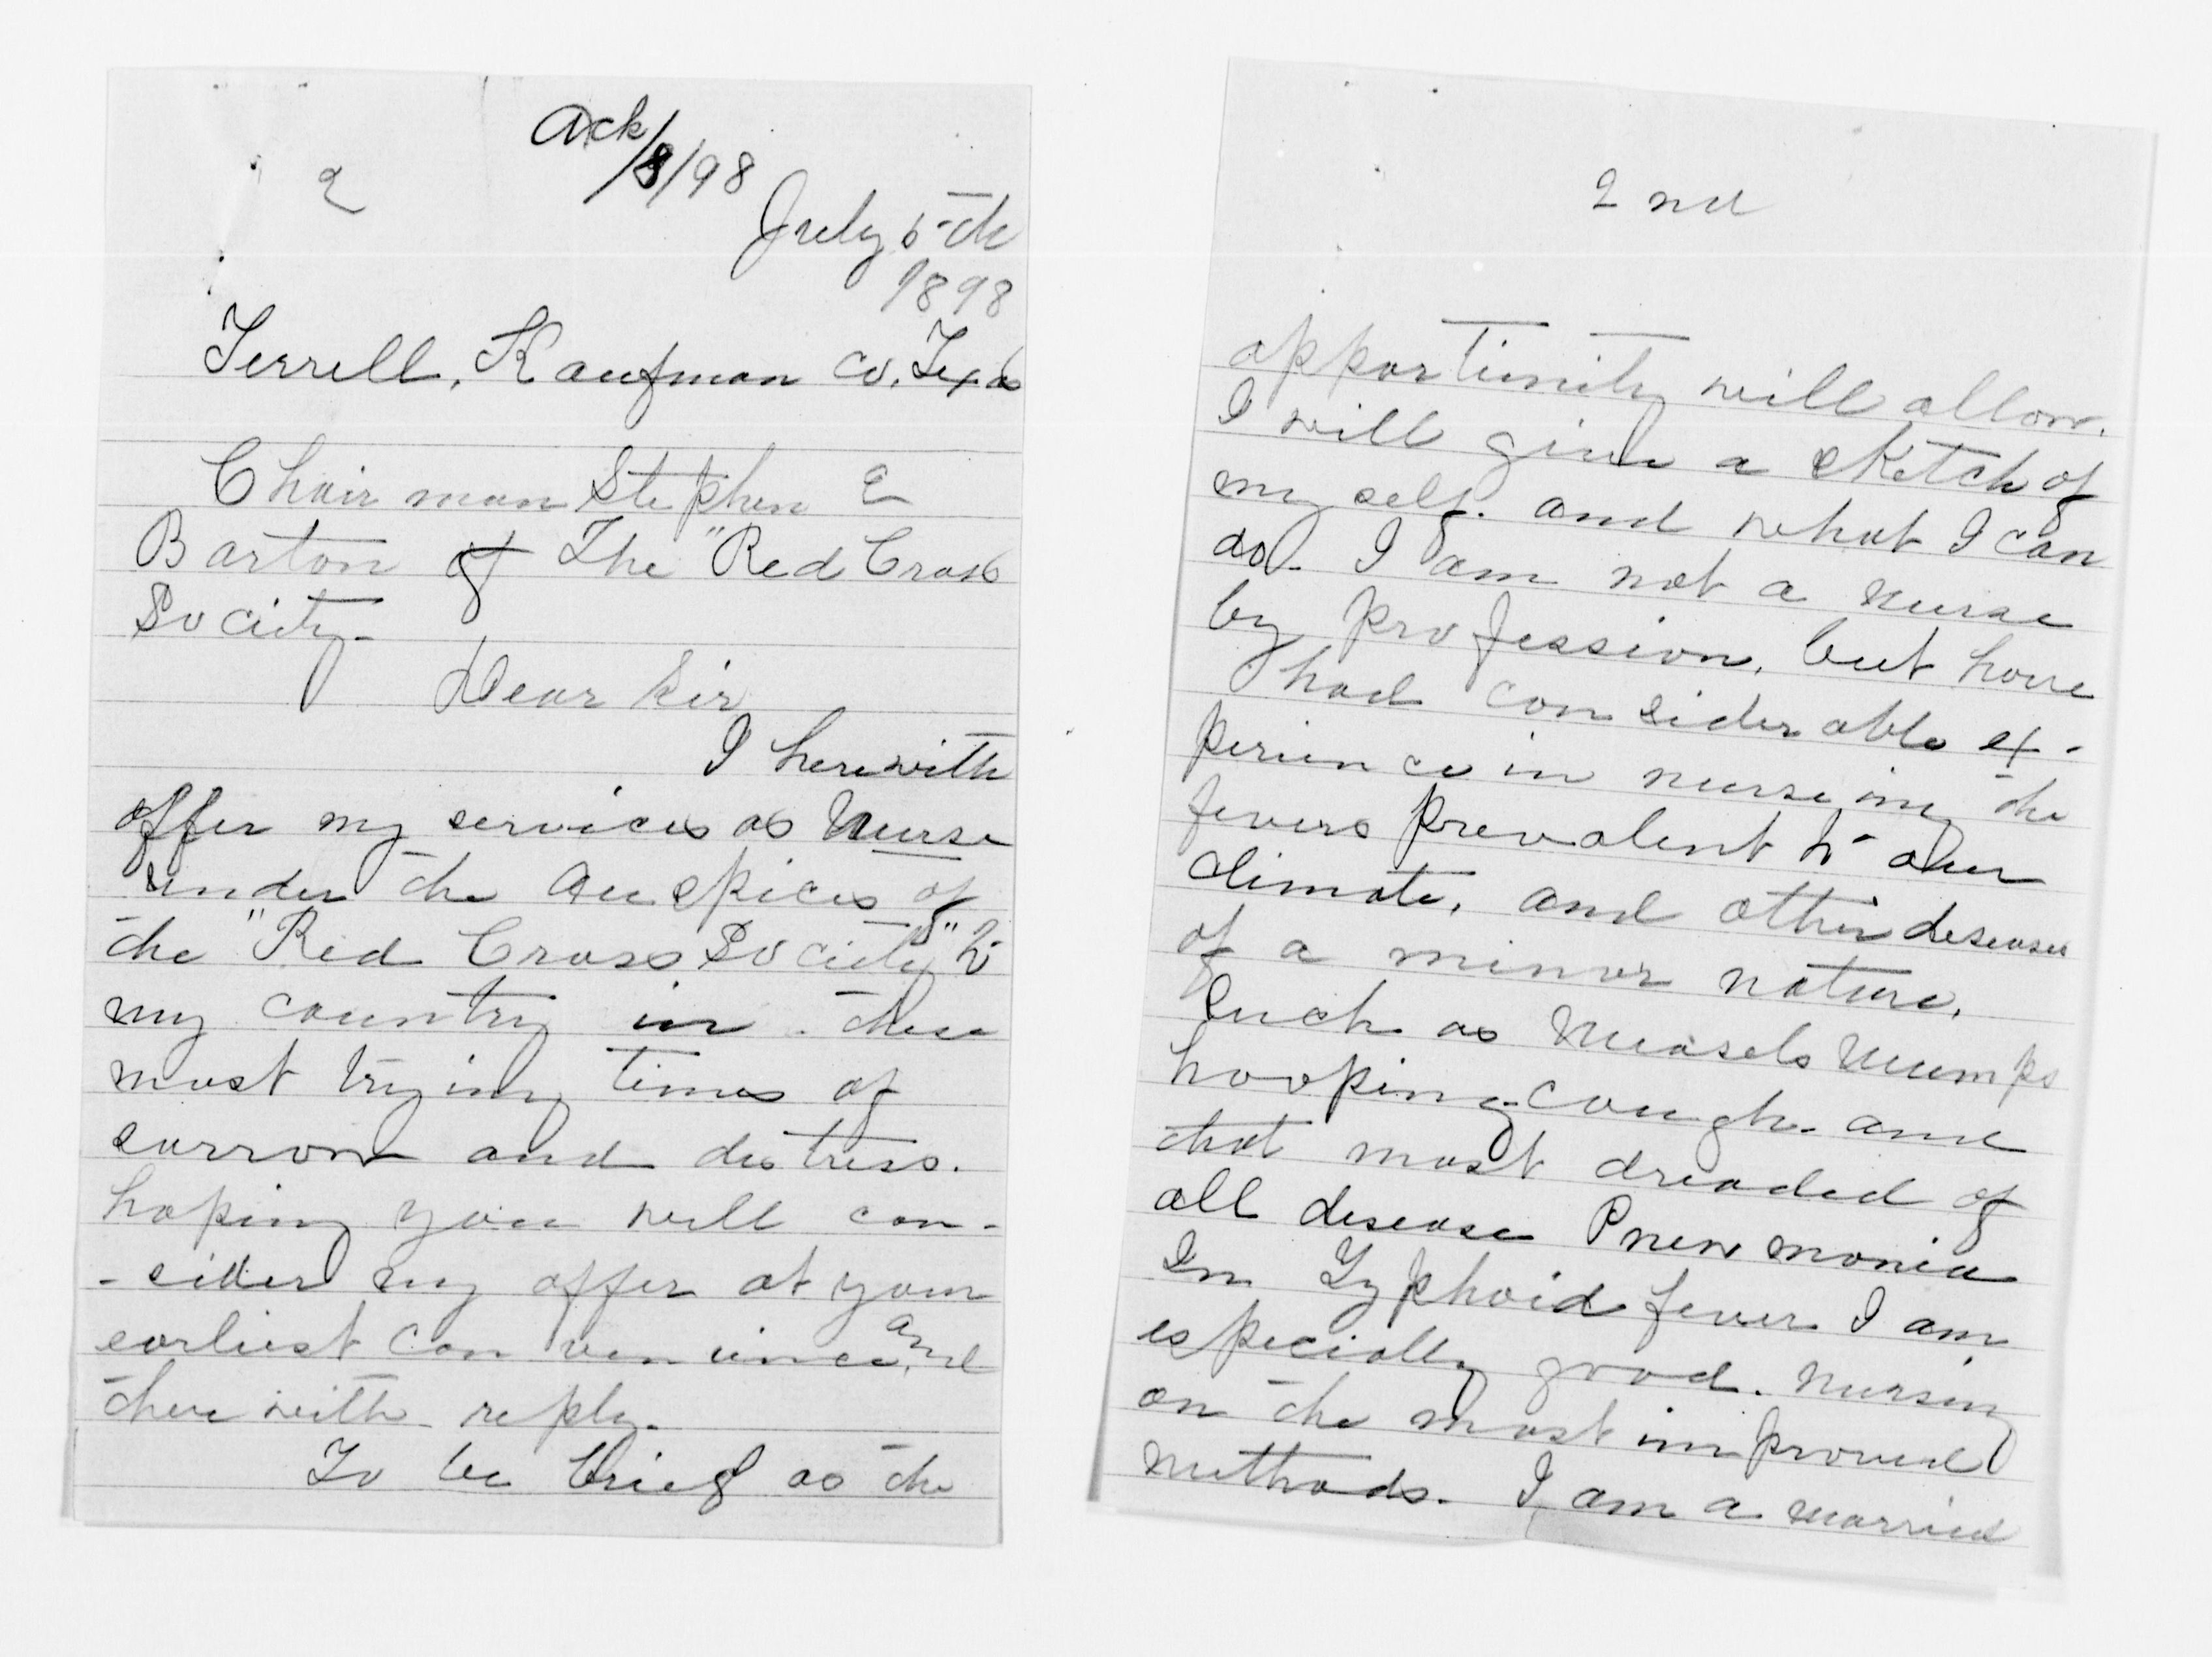 Ack
/8/98
2
July 5th
1898
Terrell, Kaufman Co, Texas
Chairman Stephen E
Barton of The "Red Cross
Society-
Dear Sir
I herewith
offer my services as Nurse
under the auspices of
the "Red Cross Society" to
my country in these
most trying times of
sorrow and distress.
hoping you will con-
-sider my offer at your
earliest convenience, and
there with reply.
To be brief as the
2nd
opportunity will allow.
I will give a sketch of
my self. and what I can
do. I am not a nurse
by profession, but have
had considerable ex-
perience in nurseing the
fevers prevalent to our
climate, and other deseases
of a minor nature,
Such as Measels Mumps
hooping-cough- and
that most dreaded of
all desease Pnewmonia
In Typhoid fever I am
especially good. Nursing
on the most improved
methods. I am a married